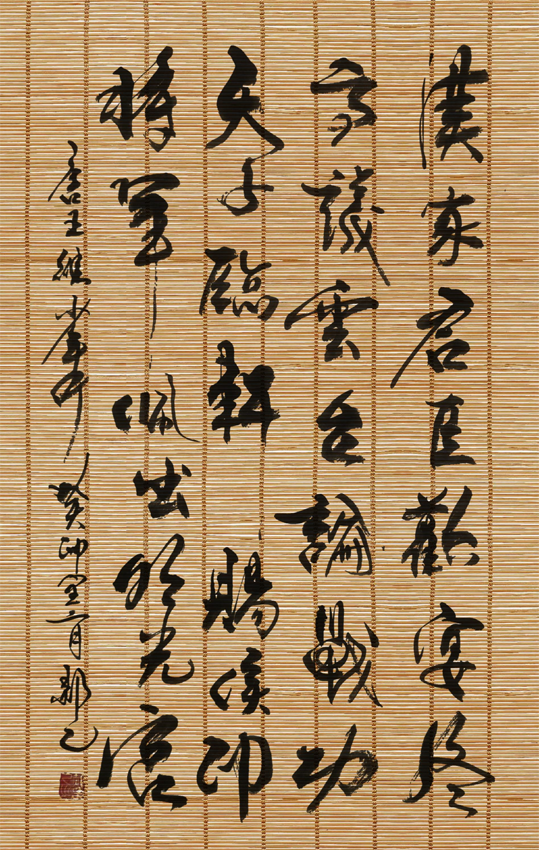 漢家君臣歡宴終
高議雲台論戰功
天子臨軒賜侯印
將軍佩出明光宮
唐王維少年行
癸卯室月鄭乙